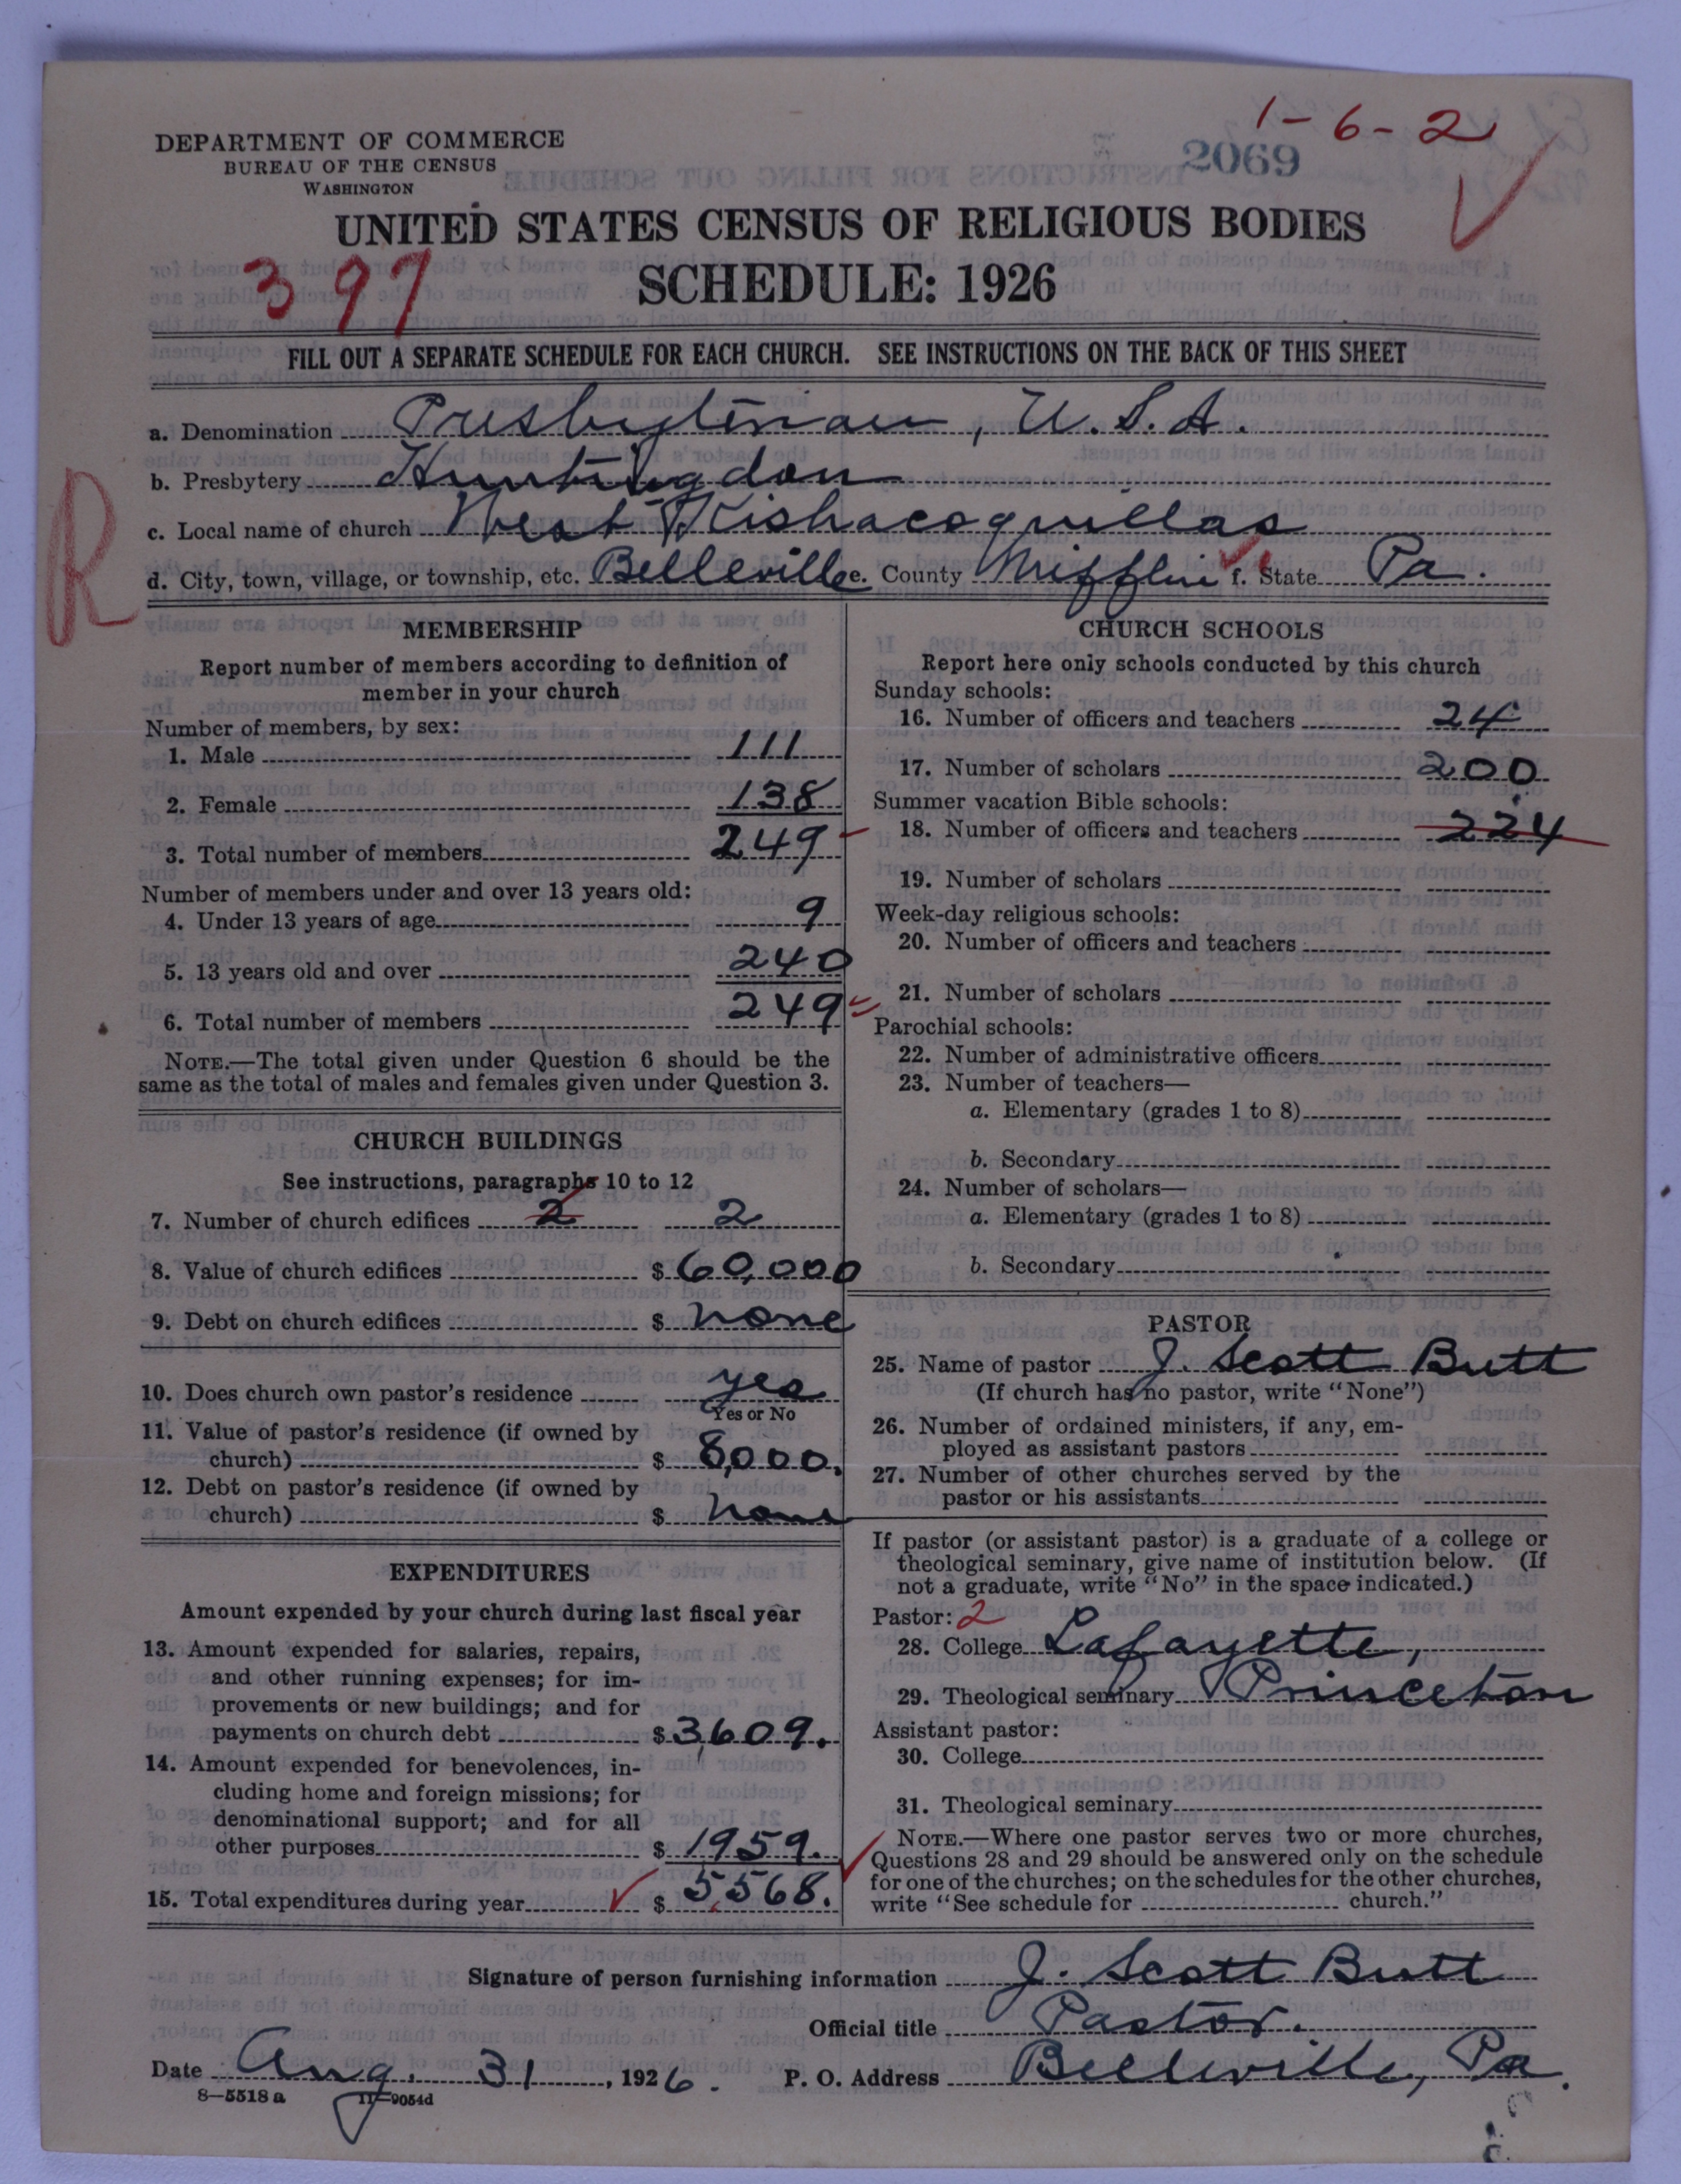 1-6-2
DEPARTMENT OF COMMERCE
BUREAU OF THE CENSUS
WASHINGTON
2069
UNITED STATES CENSUS OF RELIGIOUS BODIES
397
SCHEDULE: 1926
FILL OUT A SEPARATE SCHEDULE FOR EACH CHURCH. SEE INSTRUCTIONS ON THE BACK OF THIS SHEET
a. Denomination Presbyterian, U.S.A.
b. Presbytery Huntingdon
R
c. Local name of church West Kishacoquillas
d. City, town, village, or township, etc. Belleville e. County Mifflin f. State Pa.
MEMBERSHIP
Report number of members according to definition of
member in your church
Number of members, by sex:
1. Male 111
2. Female 138
3. Total number of members 249
Number of members under and over 13 years old:
4. Under 13 years of age 9
5. 13 years old and over 240
6. Total number of members 249
NOTE.—The total given under Question 6 should be the
same as the total of males and females given under Question 3.
CHURCH BUILDINGS
See instructions, paragraphs 10 to 12
7. Number of church edifices 2 2
8. Value of church edifices $ 60,000
9. Debt on church edifices $ none
10. Does church own pastor's residence yes
Yes or No
11. Value of pastor's residence (if owned by
church) $ 8,000.
12. Debt on pastor's residence (if owned by
church) $ none
EXPENDITURES
Amount expended by your church during last fiscal year
13. Amount expended for salaries, repairs,
and other running expenses; for im-
provements or new buildings; and for
payments on church debt $ 3,609.
14. Amount expended for benevolences, in-
cluding home and foreign missions; for
denominational support; and for all
other purposes $ 1959.
15. Total expenditures during year $ 5,568.
CHURCH SCHOOLS
Report here only schools conducted by this church
Sunday schools:
16. Number of officers and teachers 24
17. Number of scholars 200
Summer vacation Bible schools:
18. Number of officers and teachers 224
19. Number of scholars
Week-day religious schools:
20. Number of officers and teachers
21. Number of scholars
Parochial schools:
22. Number of administrative officers
23. Number of teachers—
a. Elementary (grades 1 to 8)
b. Secondary
24. Number of scholars—
a. Elementary (grades 1 to 8)
b. Secondary
PASTOR
25. Name of pastor J. Scott Butt
(If church has no pastor, write "None")
26. Number of ordained ministers, if any, em-
ployed as assistant pastors
27. Number of other churches served by the
pastor or his assistants
If pastor (or assistant pastor) is a graduate of a college or
theological seminary, give name of institution below. (If
not a graduate, write "No" in the space indicated.)
Pastor: 2
28. College Lafayette,
29. Theological seminary Princeton
Assistant pastor:
30. College
31. Theological seminary
NOTE.—Where one pastor serves two or more churches,
Questions 28 and 29 should be answered only on the schedule
for one of the churches; on the schedules for the other churches,
write "See schedule for church."
Signature of person furnishing information J. Scott Butt
Official title Pastor.
Date Aug. 31, 1926. P. O. Address Belleville, Pa.
8—5518a 11—9054d